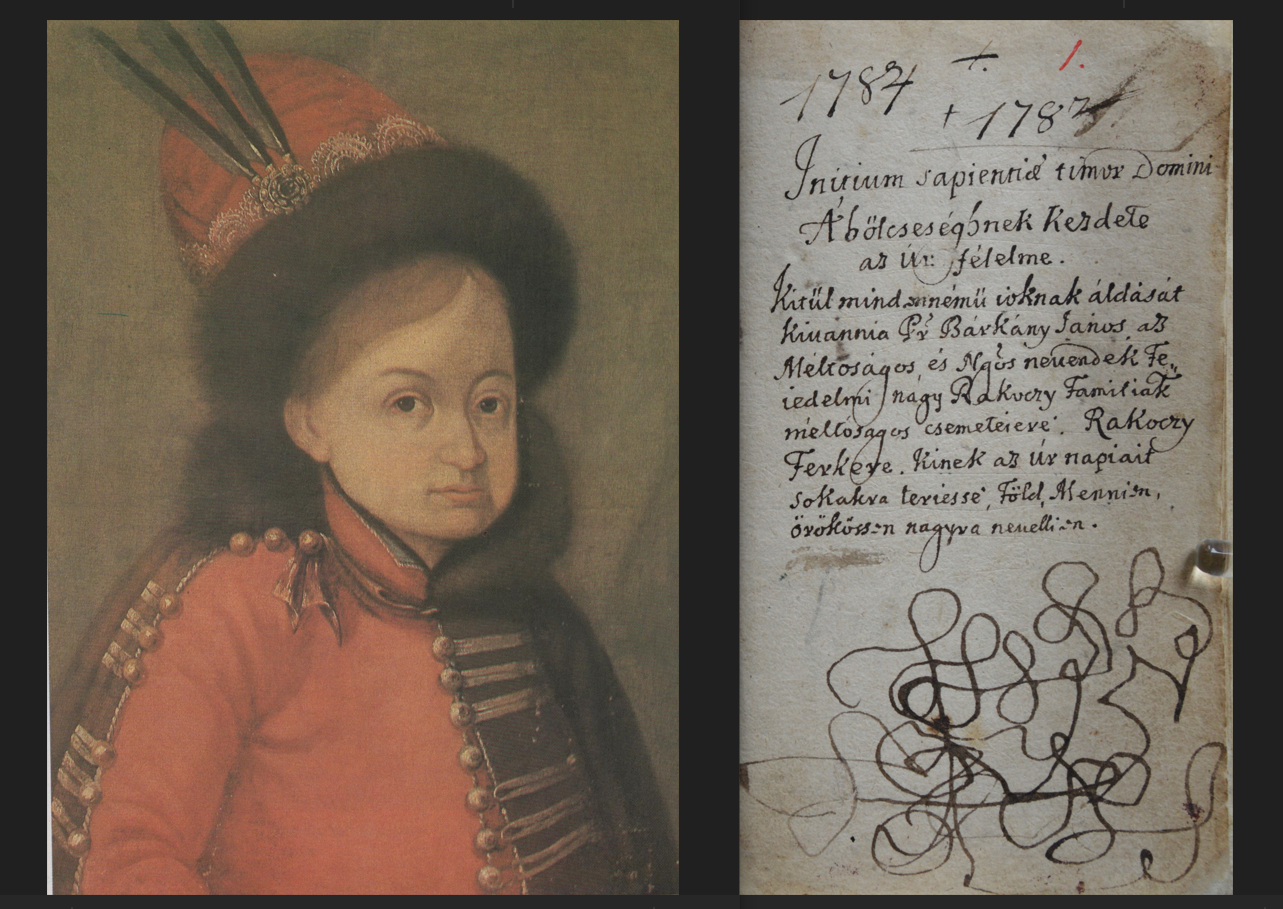 1784 +. 1.
+ 1782
Initium sapientiæ timor Domini
A bölcseséghnek kezdete
az Úr félelme.
Kitül mindennémü ioknak áldását
kiuannia Pr Bárkány János az
Méltoságos és Ngos neuendék Fe„
iedelmi nagy Rakoczy Familiak
méltóságos csemeteiere. Rakoczy
Ferkere. Kinek az Úr napiait
sokakra teriesse, Föld, Mennien,
örökössen nagyra neuellien.